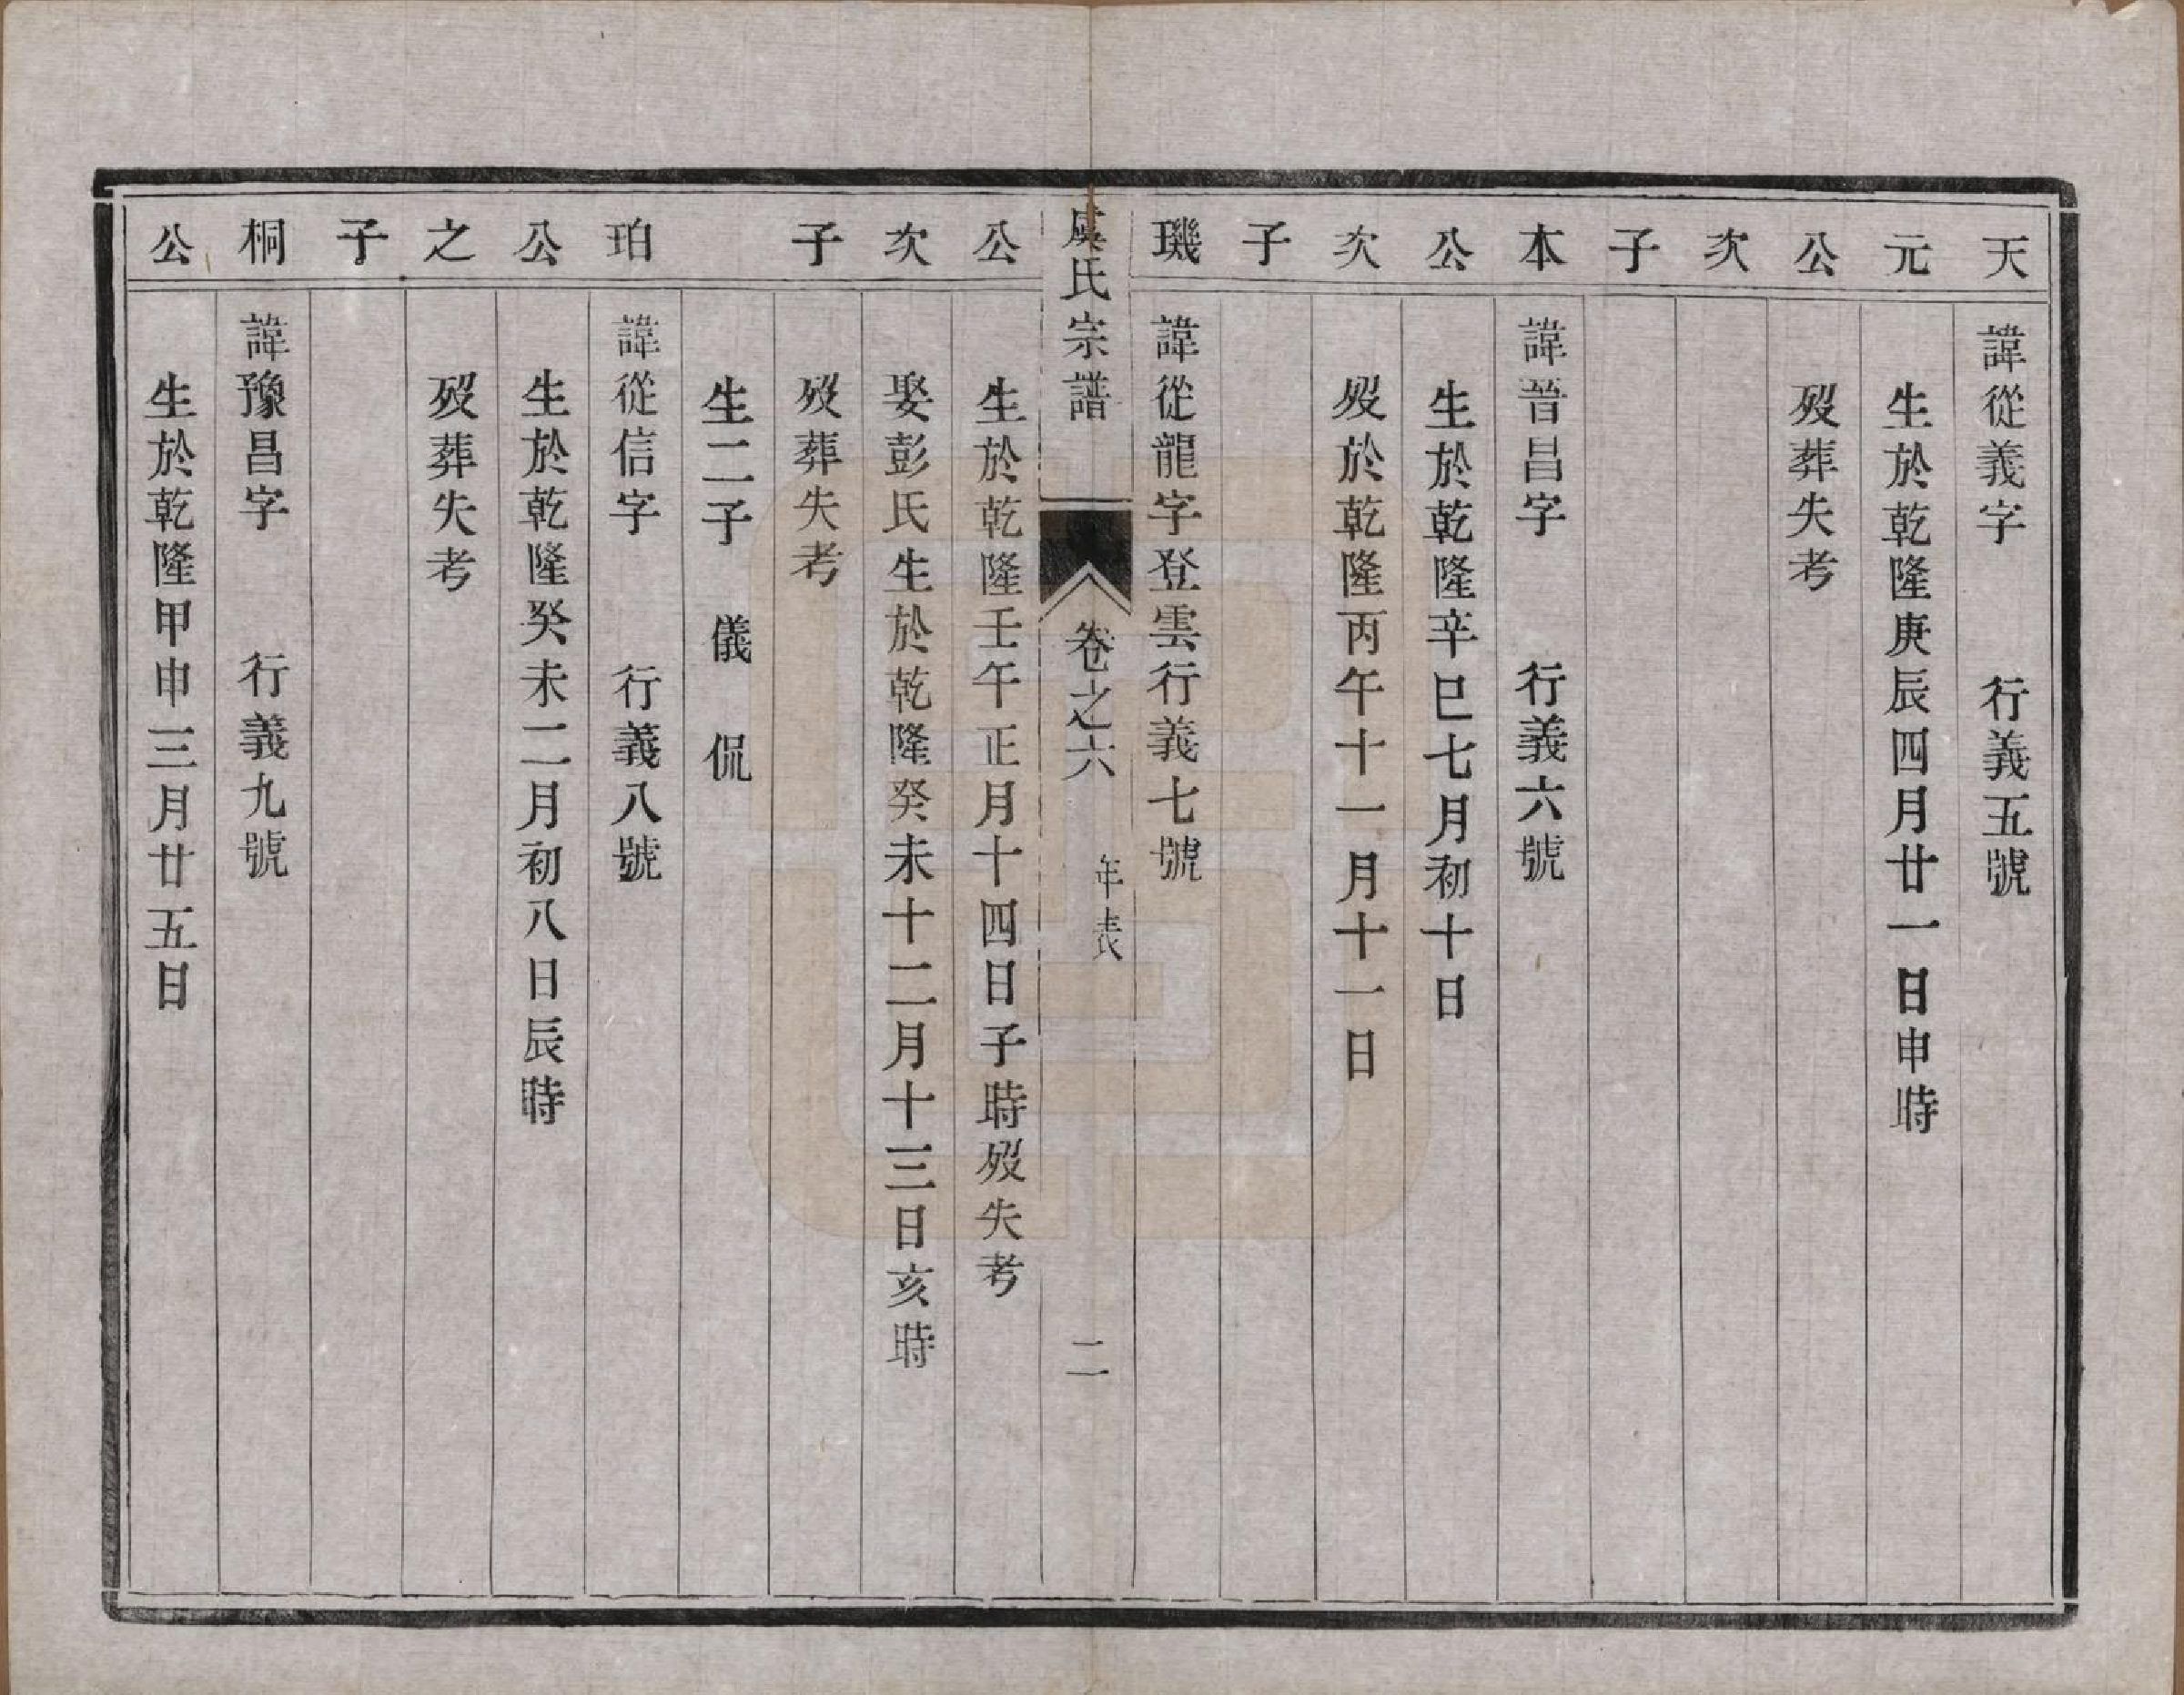 天　諱從義字　　行義五號
元　生於乾隆庚辰四月廿一日申時
公　歿葬失考
次
子
本　諱晉昌字　　行義六號
公　生於乾隆辛巳七月初十日
次　歿於乾隆丙午十一月十一日
子
璣　諱從龍字登雲行義七號
虞氏宗譜　卷之六　年表　二
公　生於乾隆壬午正月十四日子時歿失考
次　娶彭氏生於乾隆癸未十二月十三日亥時
子　歿葬失考
生二子　儀　侃
珀　諱從信字　　行義八號
公　生於乾隆癸未二月初八日辰時
之　歿葬失考
子
桐　諱豫昌字　　行義九號
公　生於乾隆甲申三月廿五日